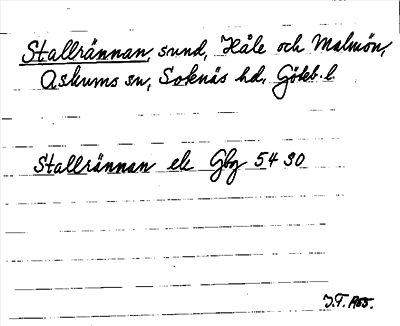 Stallrännan, sund, Håle och Malmön,
Askums sn, Sotenäs hd, Göteb. l.
Stallrännan ek Gbg 5430
J.T. 1955.